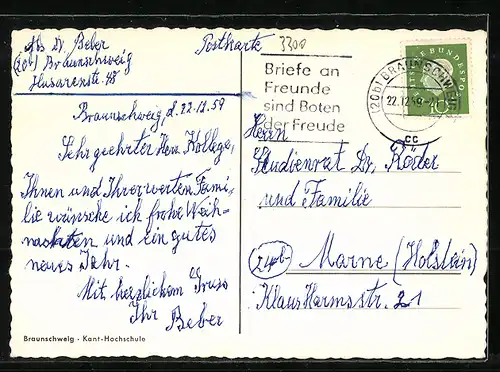 Abs. Dr. Beber
(20b) Braunschweig
Husarenstr. 48
Postkarte
3300
Braunschweig, d. 22.12.59
Sehr geehrter Herr Kollege,
Ihnen und Ihrer werten Fami-
lie wünsche ich frohe Weih-
nachten und ein gutes
neues Jahr.
Mit herzlichem Gruss
Ihr Beber
Braunschweig · Kant-Hochschule
Briefe an
Freunde
sind Boten
der Freude
(20b) BRAUNSCHWEIG
22.12.59
cc
DEUTSCHE BUNDESPOST
10
Herrn
Studienrat Dr. Röder
und Familie
(24b) Marne (Holstein)
Klaus Harmsstr. 21